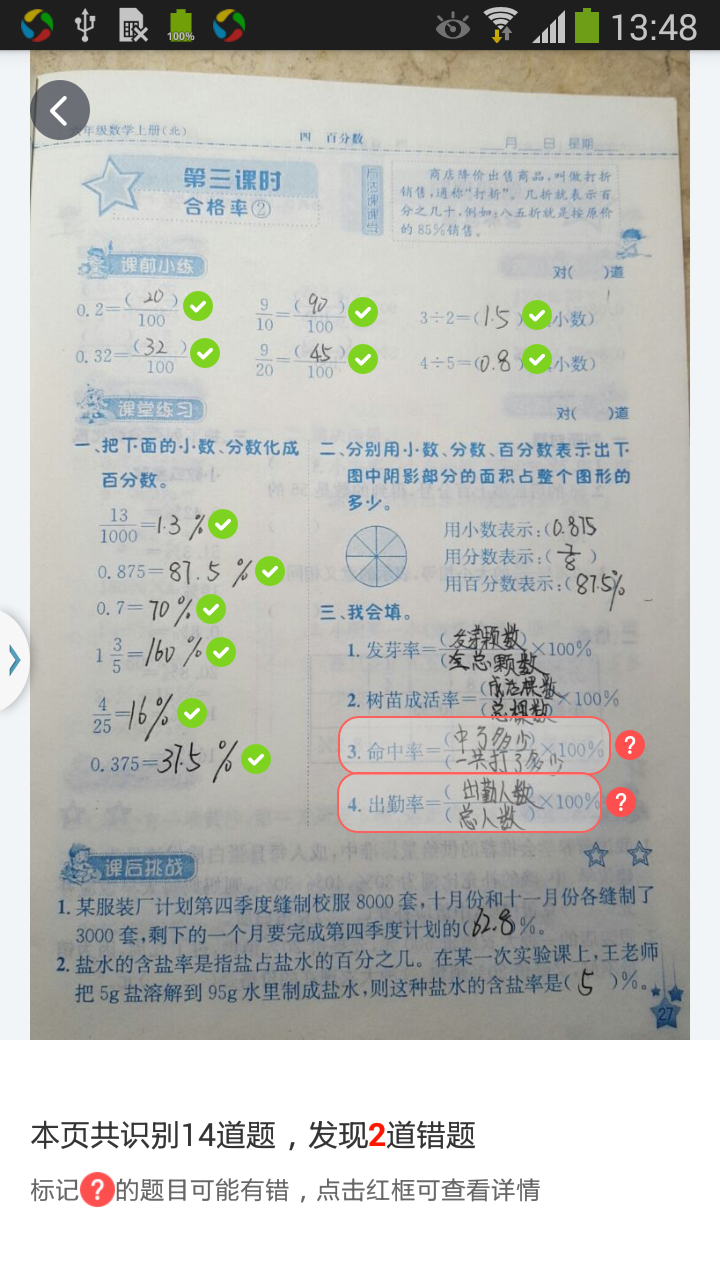 100%
13:48
六年级数学上册(北)
四 百分数
月 日 星期
第三课时
合格率②
商店降价出售商品,叫做打折
销售,通称“打折”。几折就表示百
分之几十,例如:八五折就是按原价
的85%销售。
课前小练
对( )道
0.2=(20)/100
9/10=(90)/100
3÷2=(1.5) 小数)
0.32=(32)/100
9/20=(45)/100
4÷5=(0.8) 小数)
课堂练习
对( )道
一、把下面的小数、分数化成
百分数。
13/1000=1.3%
0.875=87.5%
0.7=70%
1 3/5=160%
4/25=16%
0.375=37.5%
二、分别用小数、分数、百分数表示出下
图中阴影部分的面积占整个图形的
多少。
用小数表示:(0.875
用分数表示:(7/8)
用百分数表示:(87.5%
三、我会填。
1. 发芽率=(发芽颗数)/(总颗数)×100%
2. 树苗成活率=(成活棵数)/(总棵数)×100%
3. 命中率=(中了多少)/(一共打了多少)×100%
4. 出勤率=(出勤人数)/(总人数)×100%
课后挑战
1. 某服装厂计划第四季度缝制校服8000套,十月份和十一月份各缝制了
3000套,剩下的一个月要完成第四季度计划的(62.8%。
2. 盐水的含盐率是指盐占盐水的百分之几。在某一次实验课上,王老师
把5g盐溶解到95g水里制成盐水,则这种盐水的含盐率是(5)%。
27
本页共识别14道题，发现2道错题
标记?的题目可能有错，点击红框可查看详情